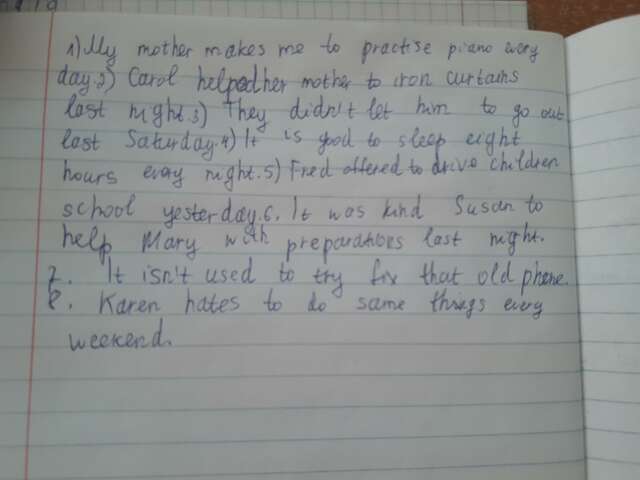 1) My mother makes me to practise piano every
day.2) Carol helped her mother to iron curtains
last night.3) They didn't let him to go out
last Saturday.4) It is good to sleep eight
hours every night.5) Fred offered to drive children
school yesterday.6. It was kind Susan to
help Mary with preparations last night.
7. It isn't used to try fix that old phone.
8. Karen hates to do same things every
weekend.